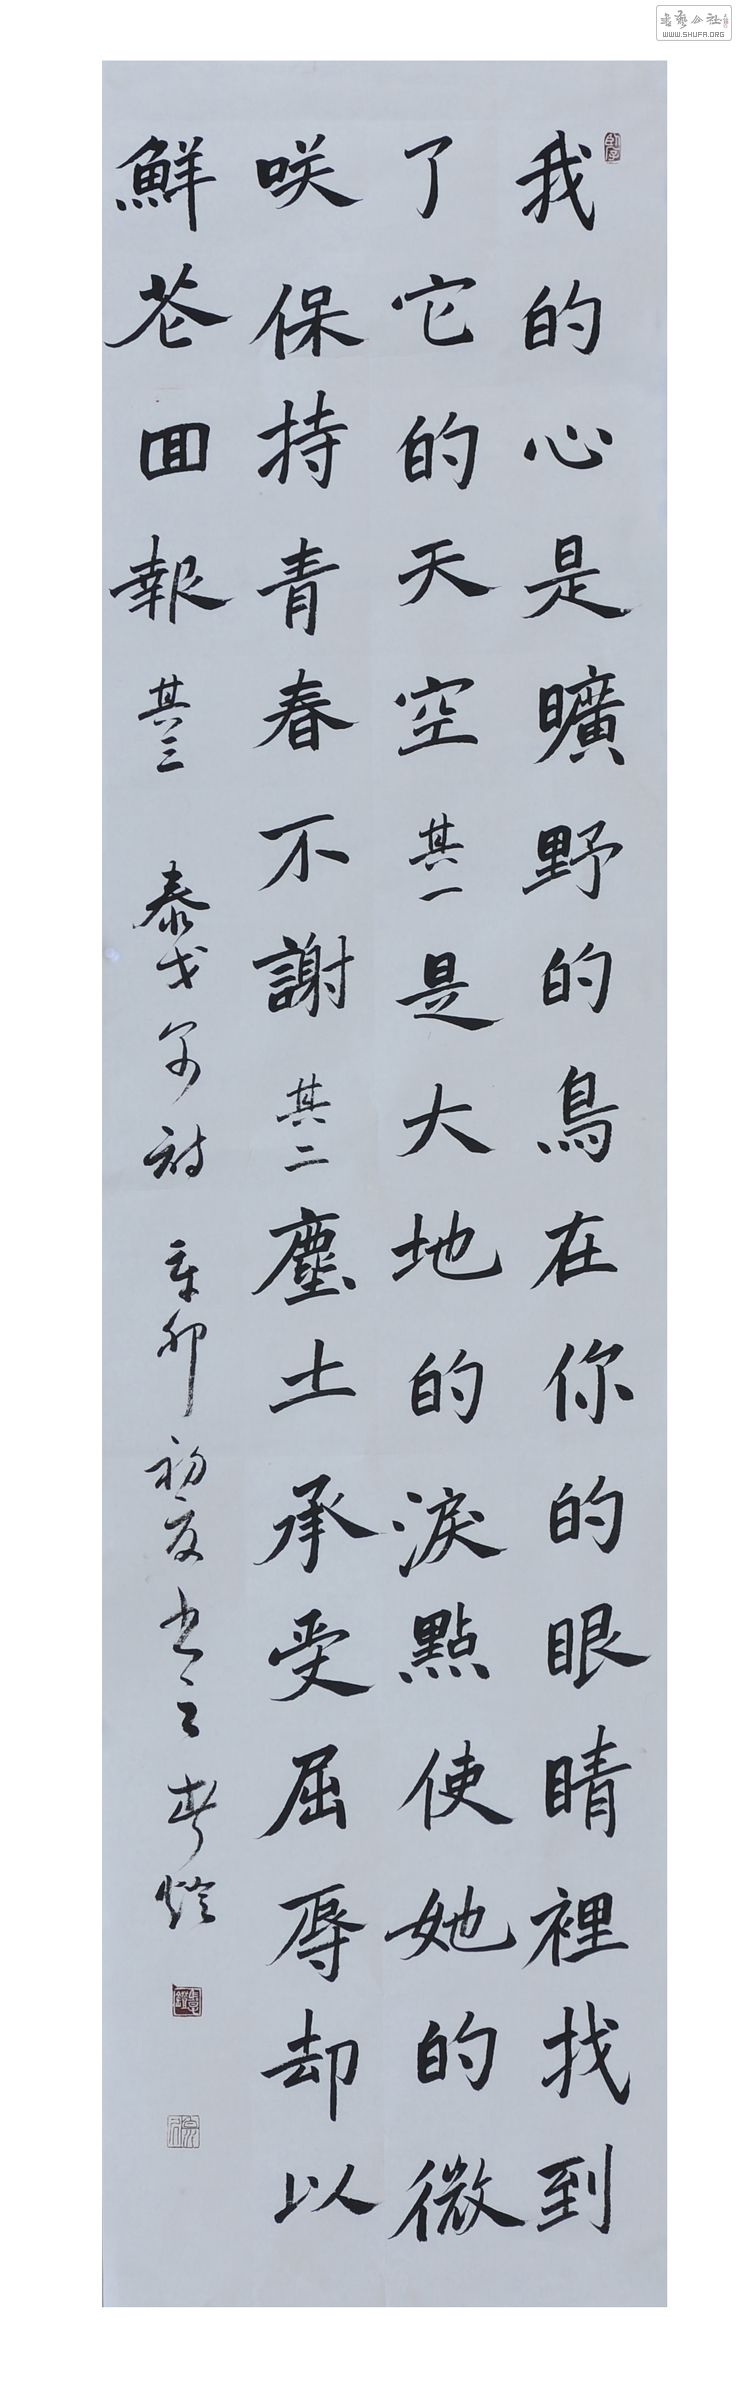 我的心是曠野的鳥在你的眼睛裡找到
了它的天空其一是大地的淚點使她的微
咲保持青春不謝其二塵土承受屈辱却以
鮮花回報其三 泰戈尔诗 辛卯初夏书之
书艺公社
WWW.SHUFA.ORG